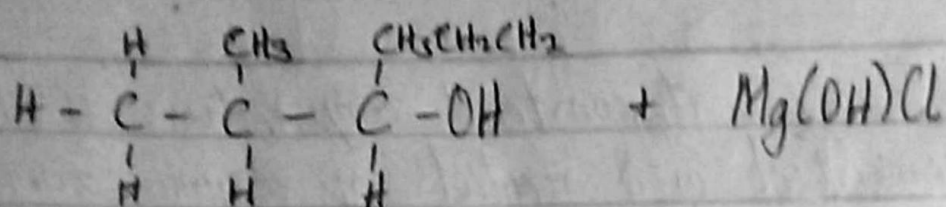 H CH3 CH3CH2CH2
H - C - C - C - OH + Mg(OH)Cl
H H H